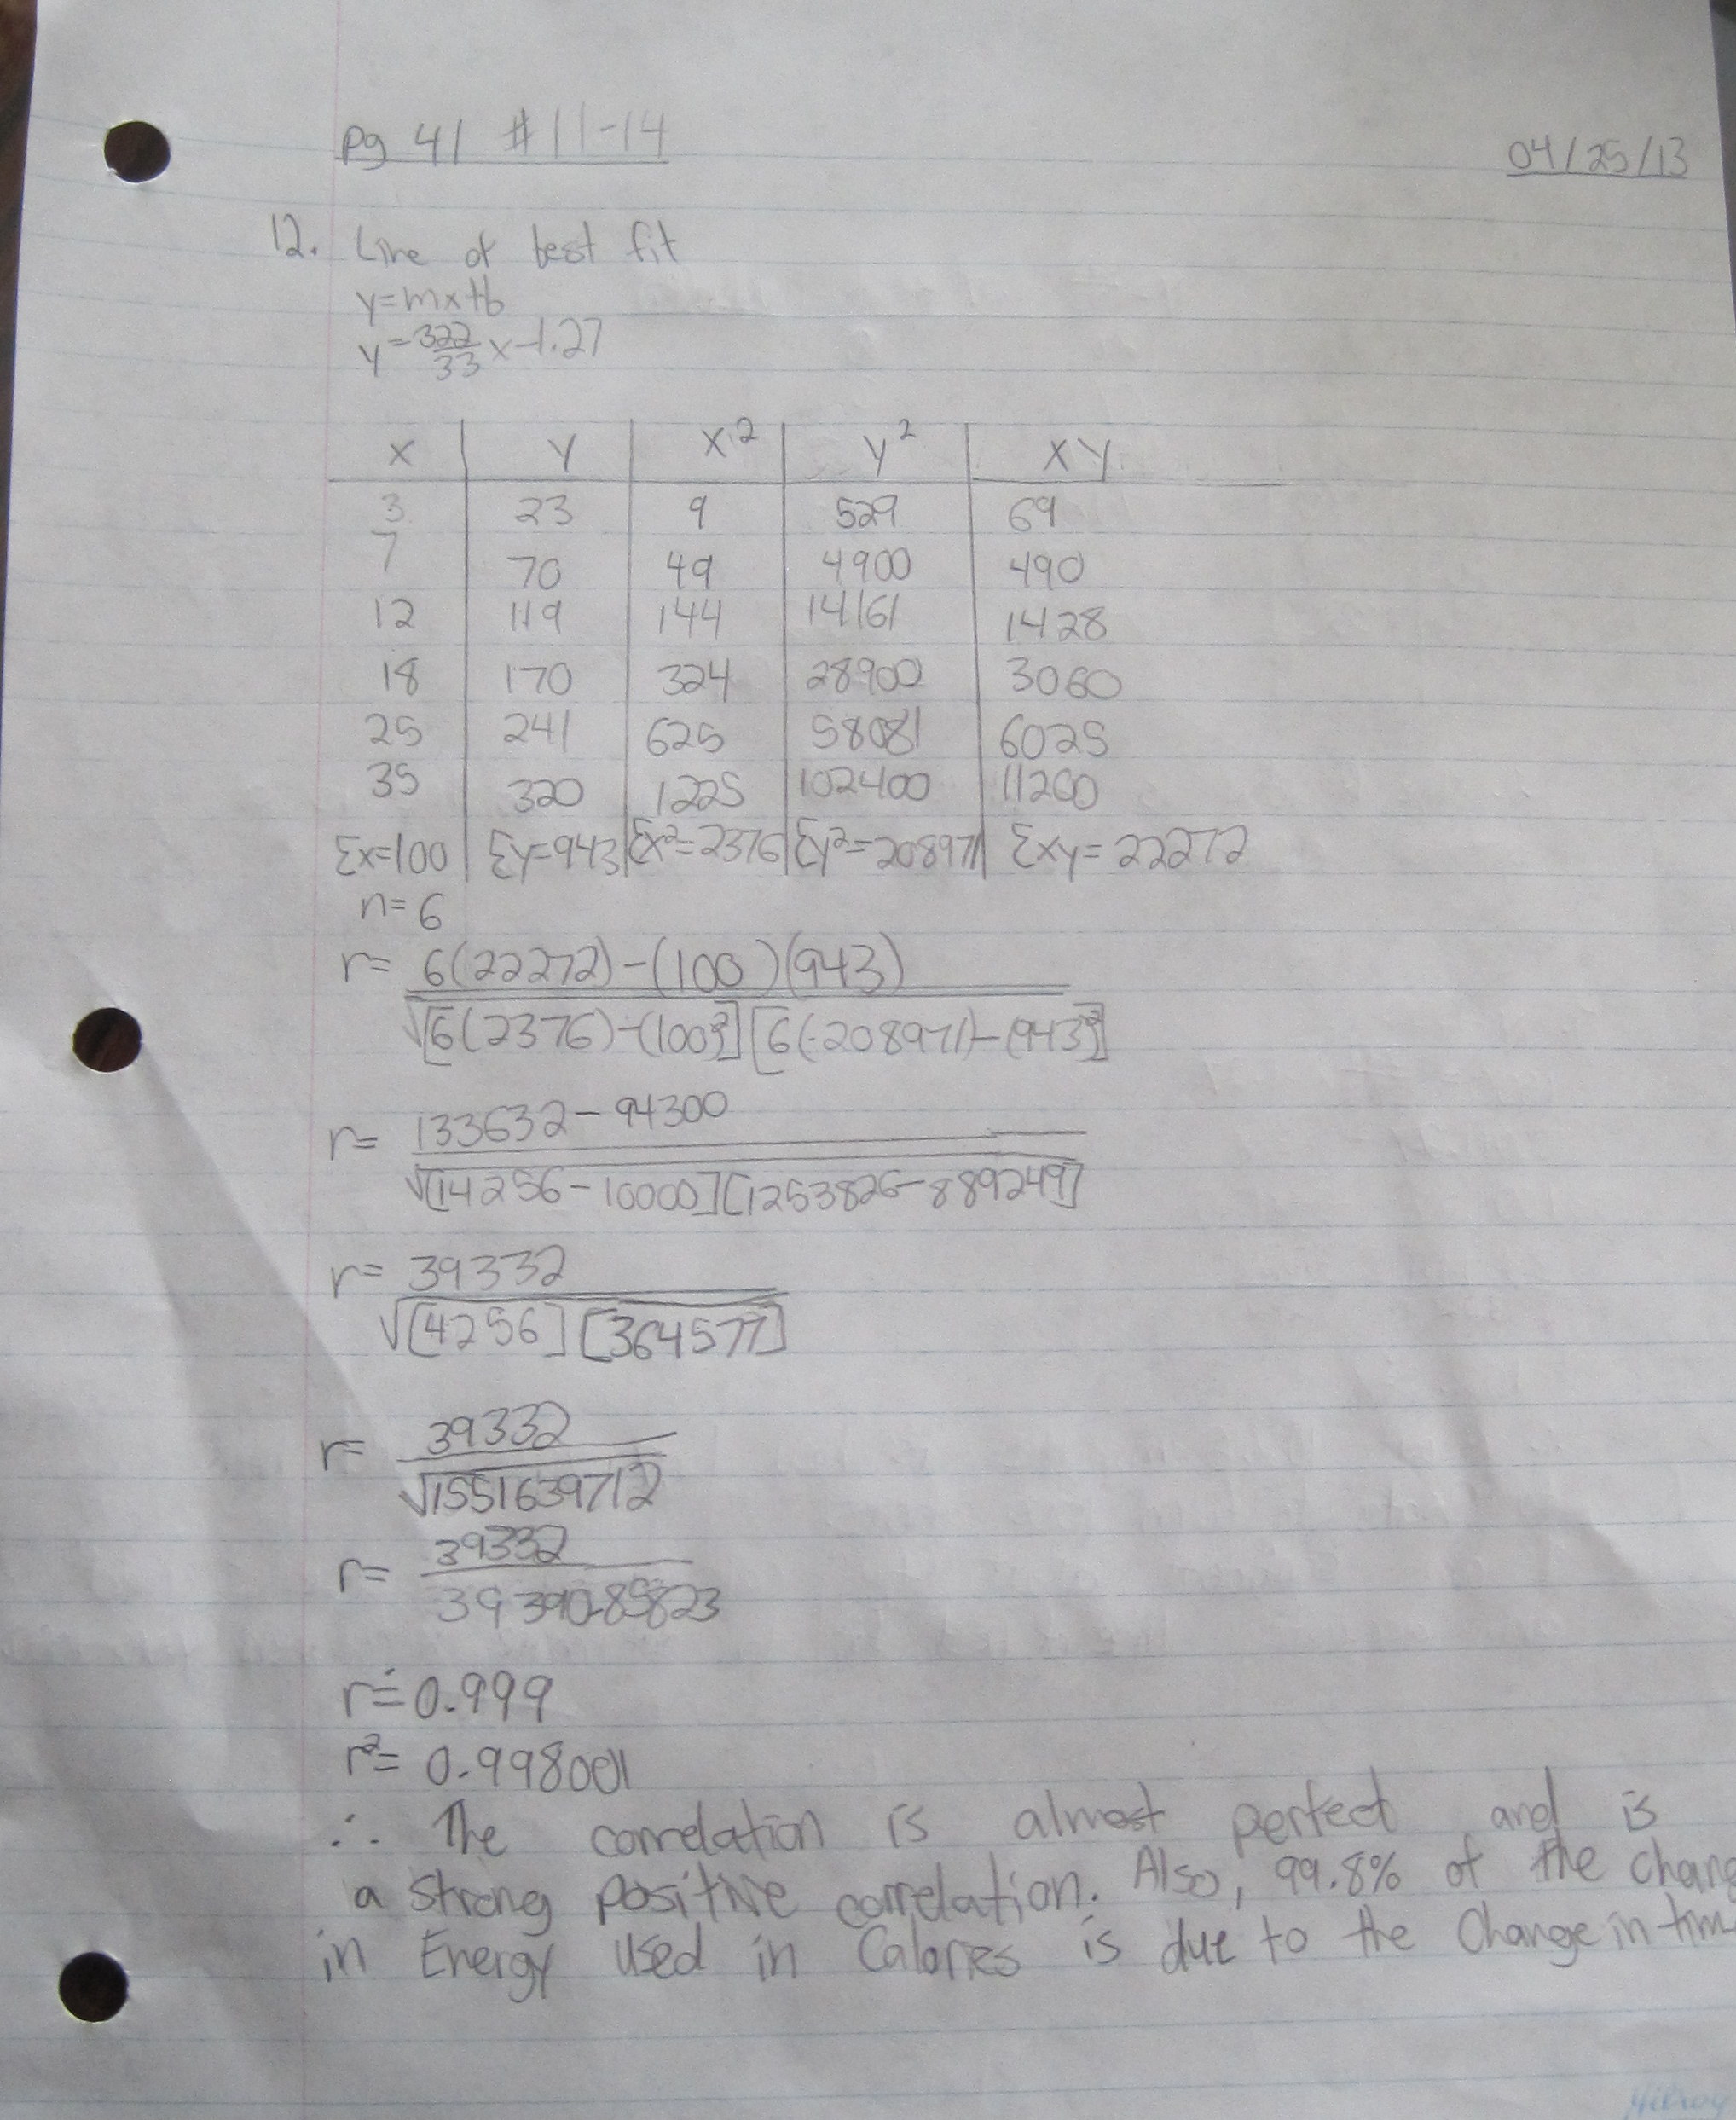 pg 41 #11-14
04/25/13
12. Line of best fit
y=mx+b
y=322/33 x-1.27
x y x² y² xy
3 23 9 529 69
7 70 49 4900 490
12 119 144 14161 1428
18 170 324 28900 3060
25 241 625 58081 6025
35 320 1225 102400 11200
Σx=100 Σy=943 Σx²=2376 Σy²=208971 Σxy=22272
n=6
r= 6(22272)-(100)(943)
√[6(2376)-(100)²][6(208971)-(943)²]
r= 133632-94300
√[14256-10000][1253826-889249]
r= 39332
√[4256][364577]
r= 39332
√1551639712
r= 39332
39390.85823
r≐0.999
r²=0.998001
∴ The correlation is almost perfect and is
a strong positive correlation. Also, 99.8% of the chang
in Energy used in Calories is due to the Change in tim
Hilroy